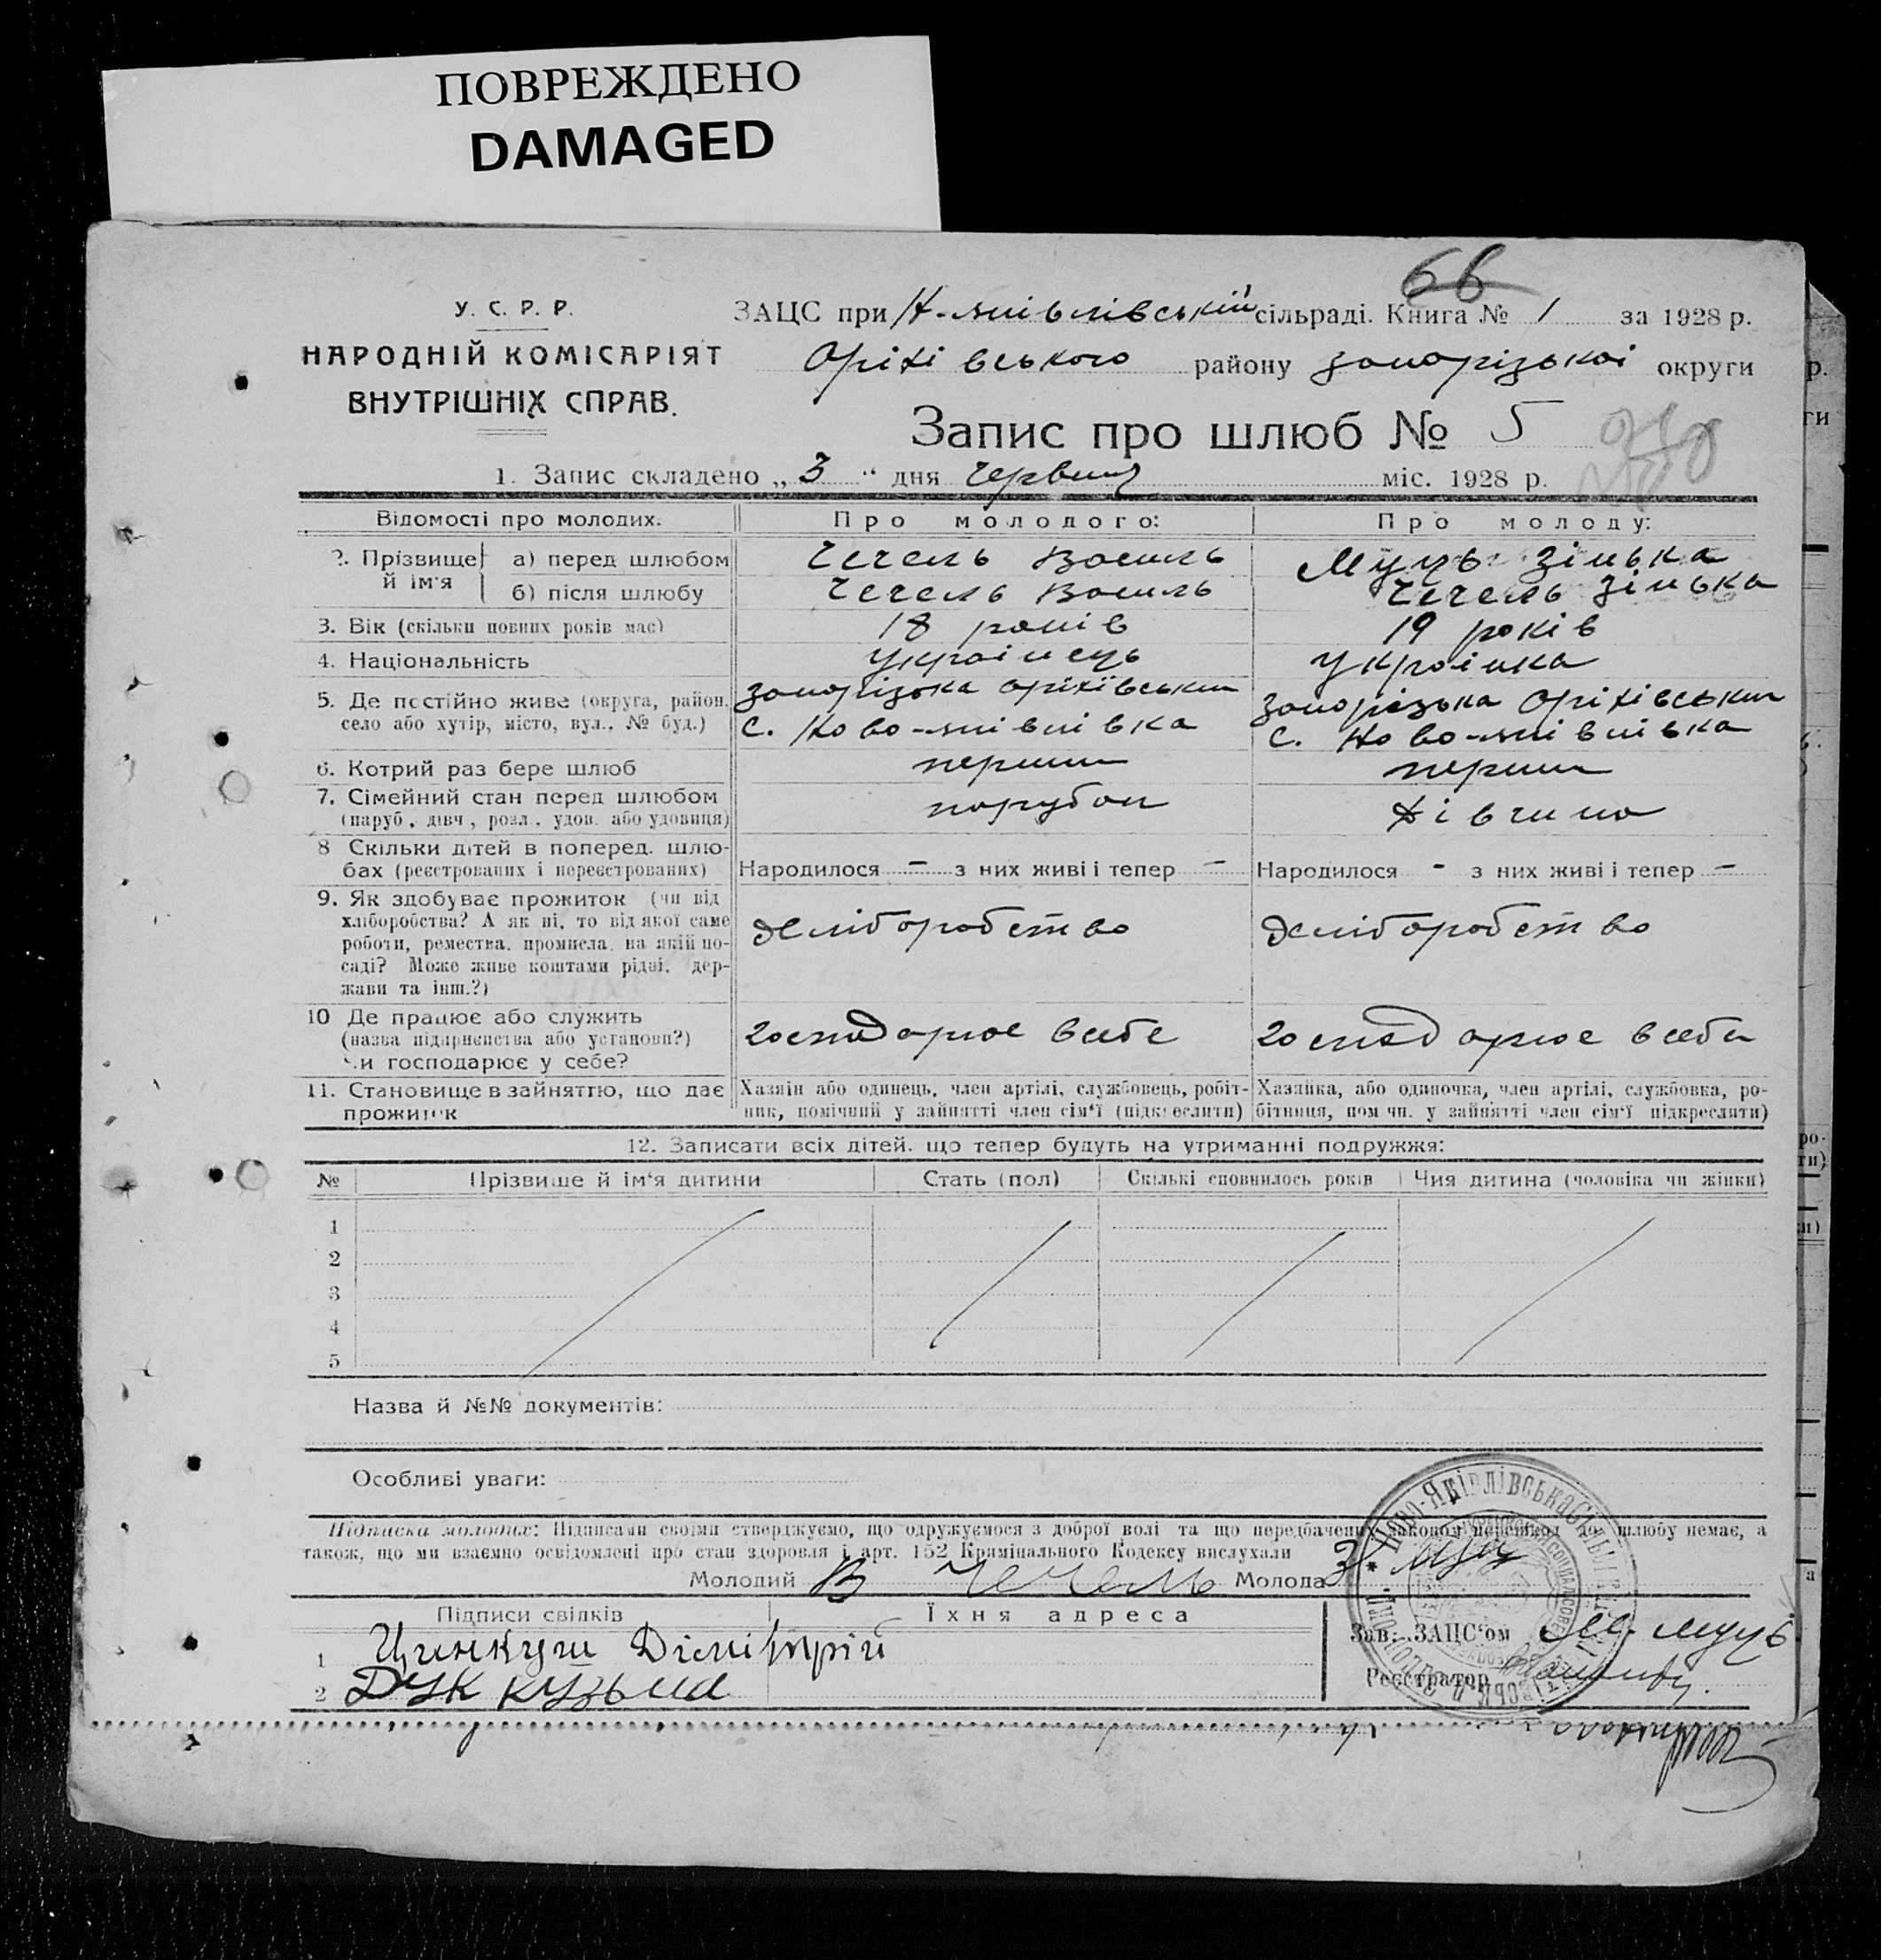 ПОВРЕЖДЕНО
DAMAGED
66
У. С. Р. Р.
НАРОДНІЙ КОМІСАРІЯТ
ВНУТРІШНІХ СПРАВ.
ЗАЦС при Н-Яківлівській сільраді. Книга № 1 за 1928 р.
Оріхівського району Запорізькоі округи
Запис про шлюб № 5
1. Запис складено „ 3 “ дня червня міс. 1928 р.
Відомості про молодих. Про молодого: Про молоду:
2. Прізвище й ім'я а) перед шлюбом Чечель Василь Муць Зінька
б) після шлюбу Чечель Василь Чечель Зінька
3. Вік (скільки повних років має) 18 років 19 років
4. Національність Украінець Украінка
5. Де постійно живе (округа, район, Запорізька Оріхівський Запорізька Оріхівський
село або хутір, місто, вул., № буд.) с. Ново-Яківлівка с. Ново-Яківлівка
6. Котрий раз бере шлюб перший перший
7. Сімейний стан перед шлюбом парубок дівчина
(паруб., дівч., розл., удов. або удовиця)
8 Скільки дітей в поперед. шлю-
бах (реєстрованих і нереєстрованих) Народилося – з них живі і тепер – Народилося - з них живі і тепер –
9. Як здобуває прожиток (чи від
хліборобства? А як ні, то від якої саме хліборобство хліборобство
роботи, ремества, промисла, на якій по-
саді? Може живе коштами рідні, дер-
жави та інш.?)
10 Де працює або служить господарює в себе господарює в себе
(назва підприємства або установи?)
чи господарює у себе?
11. Становище в зайняттю, що дає Хазяін або одинець, член артілі, службовець, робіт- Хазяйка, або одиночка, член артілі, службовка, ро-
прожиток ник, помічний у зайнятті член сім'ї (підкреслити) бітниця, пом чн. у зайнятті член сім'ї підкреслити)
12. Записати всіх дітей. що тепер будуть на утриманні подружжя:
№ Прізвище й ім'я дитини Стать (пол) Скількі сповнилось років Чия дитина (чоловіка чи жінки)
1
2
3
4
5
Назва й №№ документів:
Особливі уваги:
Підписка молодих: Підписами своїми стверджуємо, що одружуємося з доброї волі та що передбачених законом перешкод до шлюбу немає, а
також, що ми взаємно освідомлені про стан здоровля і арт. 152 Кримінального Кодексу вислухали
Молодий В Чечель Молода З Муць
Підписи свідків Їхня адреса
1 Цинкуш Дімітрій
Зав. ЗАЦС'ом Муць
2 Дук Кузьма
Реєстратор
НОВО-ЯКІВЛІВСЬКА СІЛЬРАДА